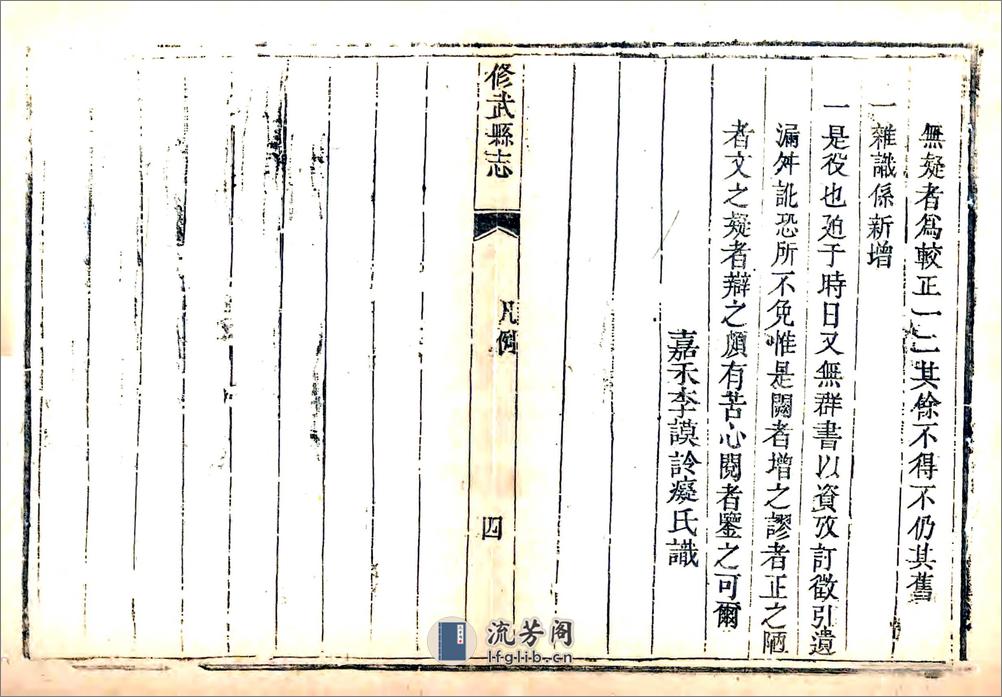 無疑者爲較正一二其餘不得不仍其舊
一雜識係新增
一是役也廹于時日又無群書以資攷訂徵引遺
漏舛訛恐所不免惟是闕者增之謬者正之陋
者文之疑者辯之頗有苦心閱者鑒之可爾
嘉禾李謨詅癡氏識
修武縣志
凡例
四
流芳阁
lfglib.cn